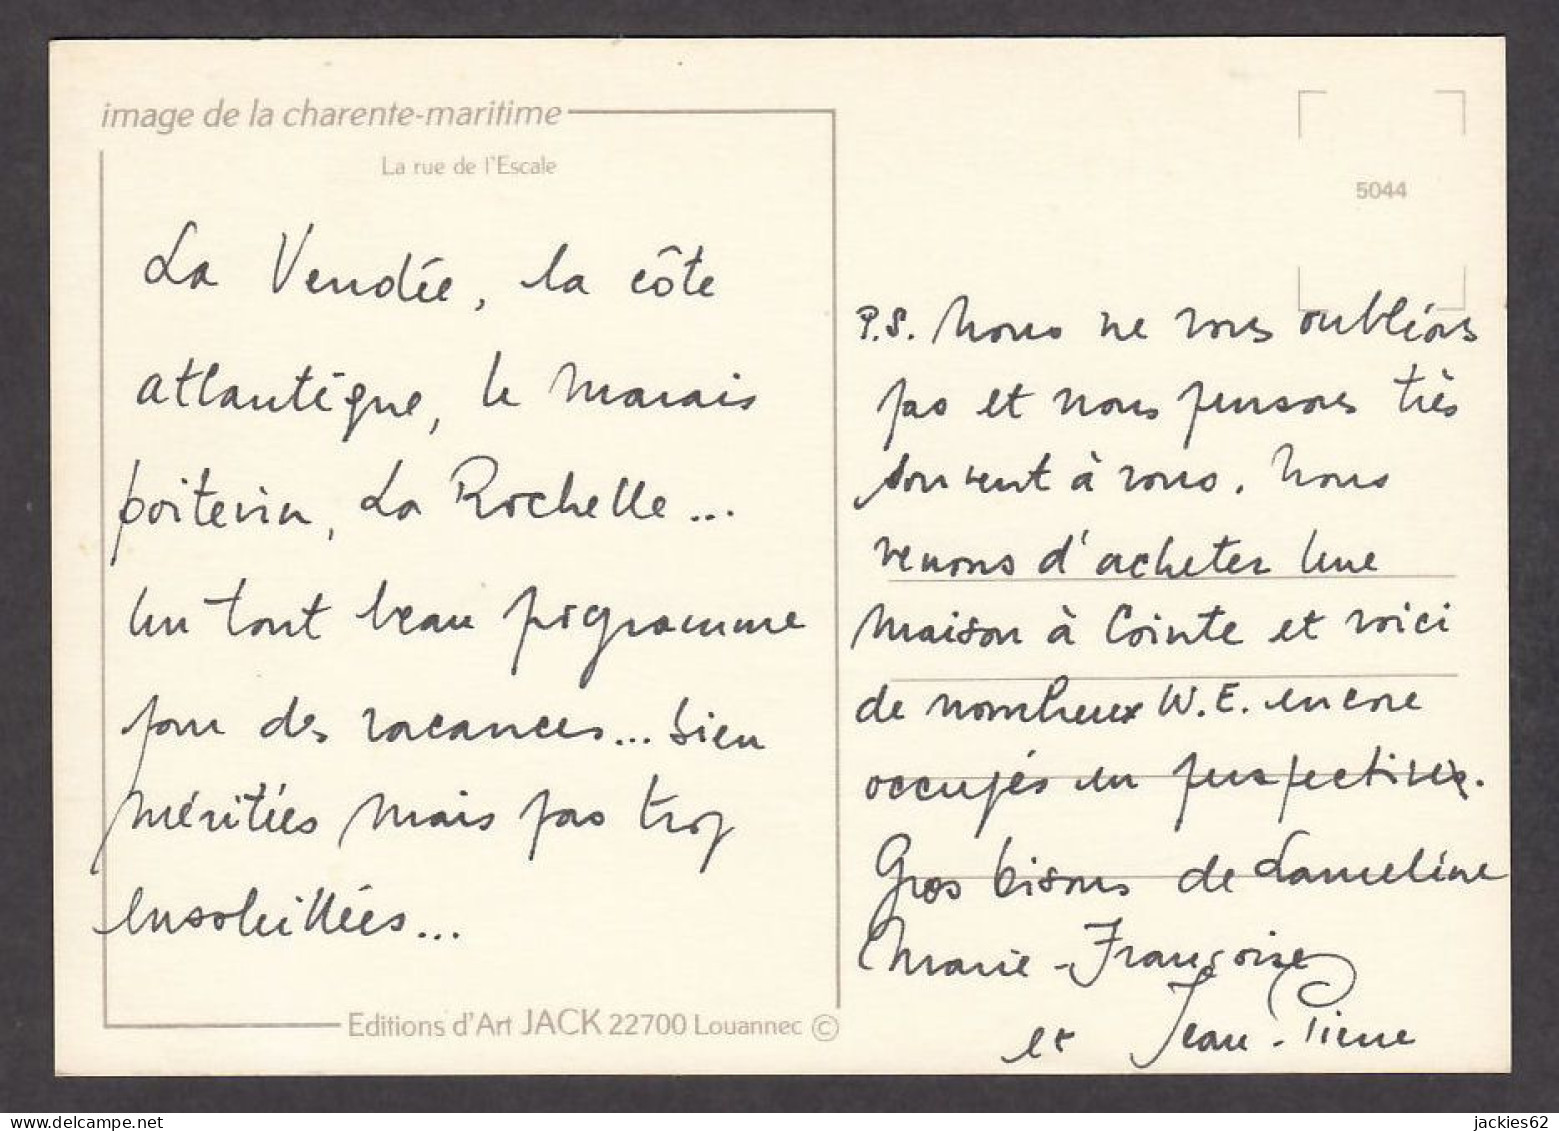 image de la charente-maritime
La rue de l'Escale
La Vendée, la côte
atlantique, le Marais
poitevin, La Rochelle...
Un tout beau programme
pour des vacances... bien
méritées mais pas trop
ensoleillées...
Editions d'Art JACK 22700 Louannec ©
5044
P.S. Nous ne vous oublions
pas et nous pensons très
souvent à vous. Nous
venons d'acheter une
maison à Cointe et voici
de nombreux W.E. encore
occupés en perspective.
Gros bisous de
Marie-Françoise
et Jean-Pierre
jackies62